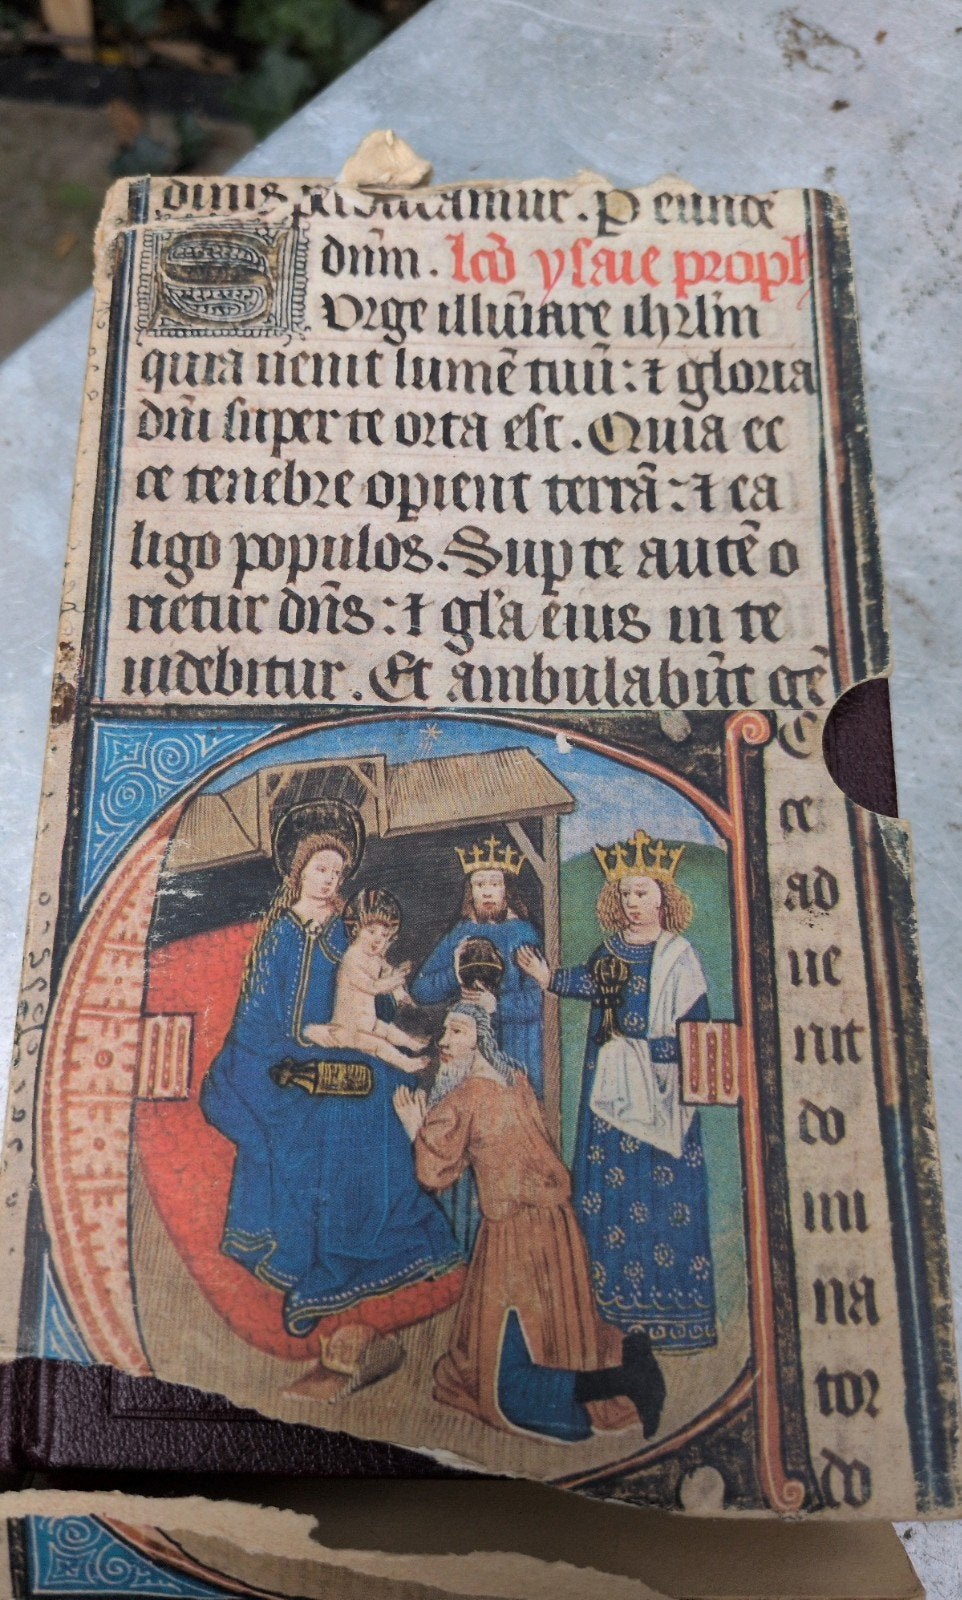 dinis perducamur. P eunde
dūm. lcō ysaie proph
Surge illūiare ihrl̄m
quia uenit lumē tuū: ⁊ gloria
dn̄i super te orta est. Quia ec
ce tenebre opient terrā: ⁊ ca
ligo populos. Sup te autē o
rietur dn̄s: ⁊ gl̄a eius in te
uidebitur. Et ambulabūt gē
E
ce
ad
ue
nit
do
mi
na
tor
do